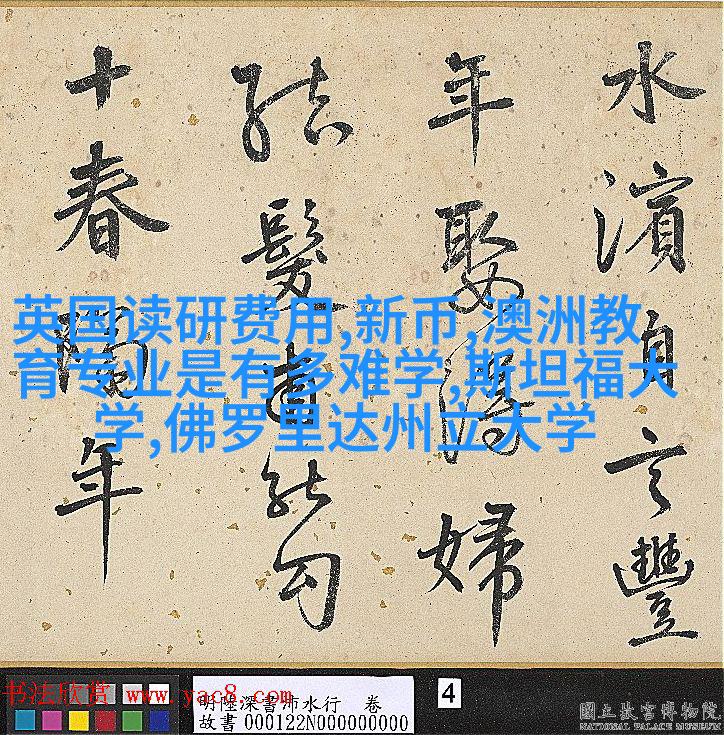 水濱自言豐
年娶得婦
結髮能勾
十春年
英国读研费用,新币,澳洲教
育专业是有多难学,斯坦福大
学,佛罗里达州立大学
书法欣赏 www.yac8.com
明陸深書沛水行 卷
故書000122N000000000
4
國立故宮博物院
NATIONAL PALACE MUSEUM